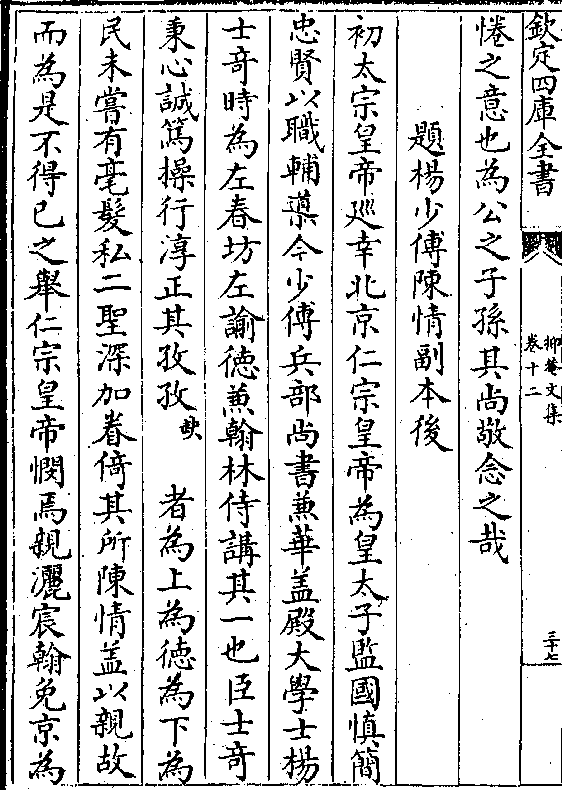 欽定四庫全書
抑菴文集
卷十二
三十七
惓之意也為公之子孫其尚敬念之哉
題楊少傅陳情副本後
初太宗皇帝廵幸北京仁宗皇帝為皇太子監國慎簡
忠賢以職輔導今少傅兵部尚書兼華盖殿大學士楊
士竒時為左春坊左諭徳兼翰林侍講其一也臣士竒
秉心誠篤操行淳正其孜孜 缺 者為上為徳為下為
民未嘗有毫髮私二聖深加眷倚其所陳情盖以親故
而為是不得已之舉仁宗皇帝憫焉親灑宸翰免京為